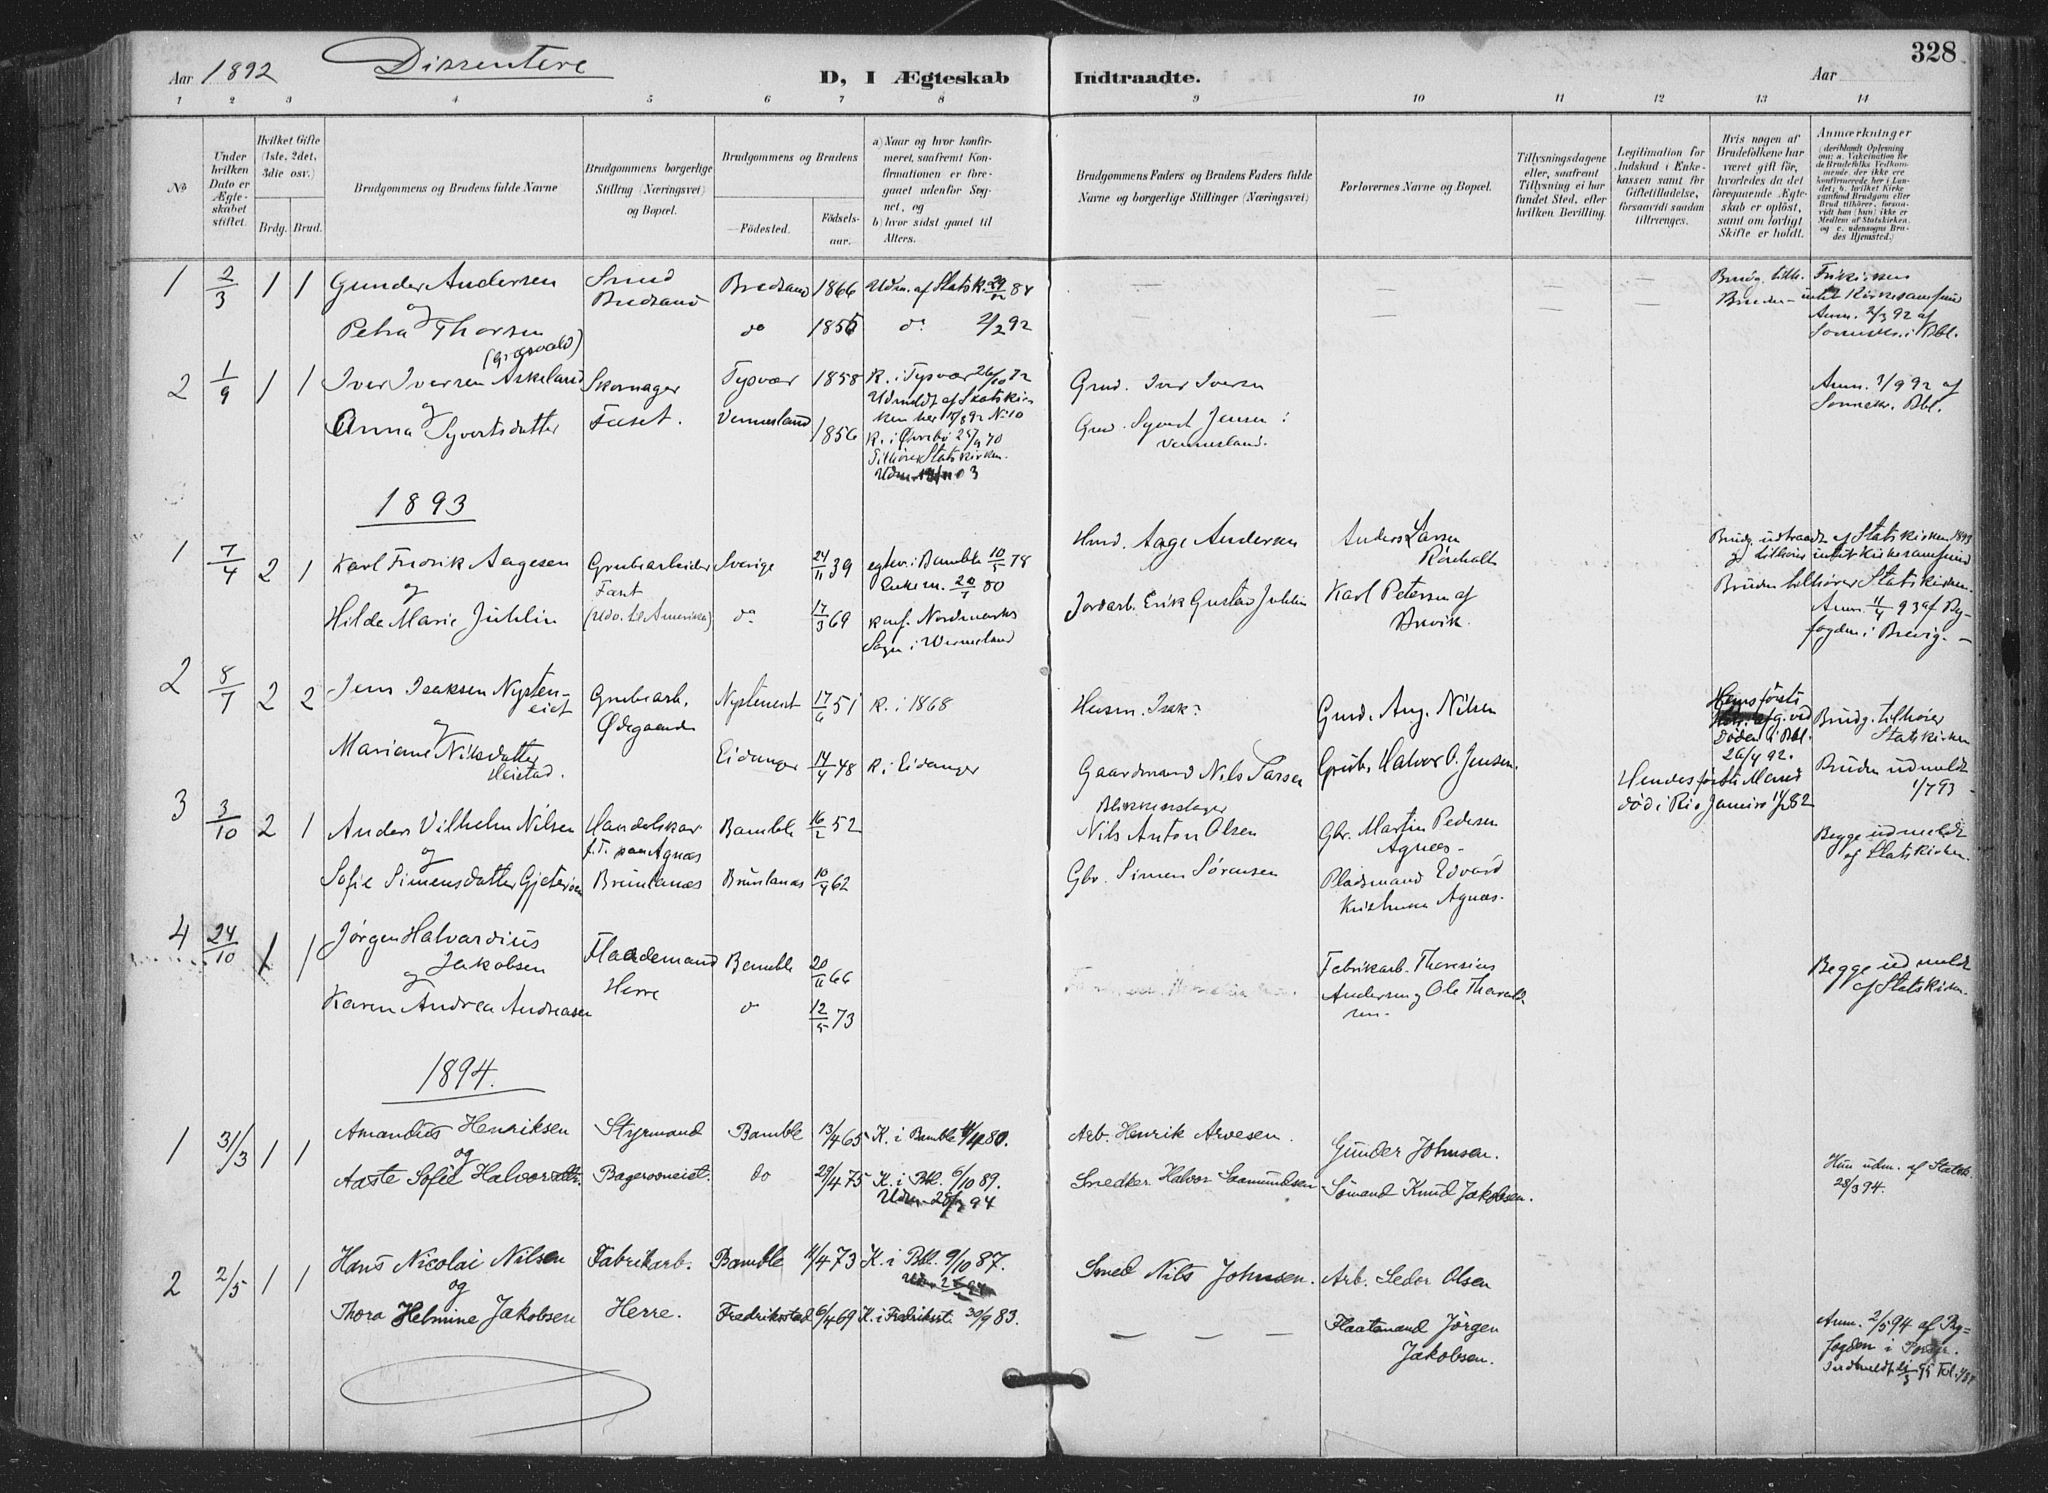 Aar 1892 Dissentere D, I Ægteskab Indtraadte. Aar 328
1 2 3 4 5 6 7 8 9 10 11 12 13 14
No
Under hvilken Dato er Ægteskabet stiftet.
Hvilket Gifte (1ste, 2det, 3die osv.)
Brdg. Brud.
Brudgommens og Brudens fulde Navne
Brudgommens borgerlige Stilling (Næringsvei) og Bopæl.
Brudgommens og Brudens
Födested. Födselsaar.
a) Naar og hvor konfirmeret, saafremt Konfirmationen er foregaaet udenfor Sognet, og
b) hvor sidst gaaet til Alters.
Brudgommens Faders og Brudens Faders fulde Navne og borgerlige Stillinger (Næringsvei)
Forlovernes Navne og Bopæl.
Tillysningsdagene eller, saafremt Tillysning ei har fundet Sted, efter hvilken Bevilling.
Legitimation for Indskud i Enkekassen samt for Giftetilladelse, forsaavidt saadan tiltrænges.
Hvis nogen af Brudefolkene har været gift før, hvorledes da det foregaaende Ægteskab er oplöst, samt om lovligt Skifte er holdt.
Anmærkninger (deriblandt Oplysning om: a. Vakcination for de Brudefolks Vedkommende, der ikke ere konfirmerede her i Landet; b. hvilket Kirkesamfund Brudgom eller Brud tilhörer, forsaavidt han (hun) ikke er Medlem af Statskirken, og c. udensogns Brudes Hjemsted.)
1 2/3 1 1 Gunder Andersen Smed Bredsand 1866 Udm. af Statsk. 84 Brudg. tilh. Frikirken
og Bredsand Bruden intet Kirkesamfund
Petra Thorsen do 1855 do 2/2 92 Anm. 2/3 92 af
Sorenskr. i Bbl.
2 1/9 1 1 Iver Iversen Askeland Skomager Tysvær 1858 K. i Tysvær 26/10 72 Grd. Iver Iversen Anm. 1/9 92 af
og Udmeldt af Statskirken her No 10
Anna Syvertsdatter Vennesland 1856 K. i Øvrebø 70 Grd. Syvert Jensen
Tilhører Statskirken. Vennesland.
1893
1 7/4 2 1 Karl Fredrik Aagesen Grubearbeider Sverige 24/11 39 egtev. i Bamble 10/5 78 Aage Andersen Anders Larsen Brudg. udtraadt af Statskirken 1893
og Enkem. 80 Rønholt og tilhører intet Kirkesamfund
Hilde Marie Juhlin (udv. til Amerika) do 17/3 69 konf. Nordmarks Jordarb. Erik Gustav Juhlin Karl Petersen af Bruden tilhører Statskirken.
Sogn i Wermeland Brevik. Anm. 11/4 93 af Byfogden i Brevig.
2 8/7 2 2 Jens Isaksen Nysteneiet Grubearb. Nysteneiet 17/6 51 K. i 1868 Husm. Isak Aug. Nilsen Brudg. tilhører
og Ødegaarden død i Bbl. Statskirken
Mariane Nilsdatter Eidanger 14/4 48 K. i Eidanger Gaardmand Nils Larsen Grub. Halvor O. Jensen. 26/4 92. Bruden udmeldt
Heistad. Hendes første Mand 1/7 93
død i Rio Janeiro 82
3 3/10 2 1 Anders Vilhelm Nilsen Handelskar. Bamble 16/2 52 Blikkenslager Nils Anton Olsen Gbr. Martin Pedersen Begge udmeldt
og f.T. paa Agnæs Agnæs af Statskirken.
Sofie Simensdatter Gjeterøen Brunlanæs Brunlanæs 10/4 62 Gbr. Simen Sørensen Pladsmand Edvard
Agnæs.
4 24/10 1 1 Jørgen Halvardius Flaademand Bamble 20/11 66 Fabrikarb. Theresius Begge udmeldt
Jakobsen Herre Andersen og Ole af Statskirken.
og
Karen Andrea Andreasen do 12/5 73
1894.
1 31/3 1 1 Amandus Henriksen Styrmand Bamble 13/4 65 K. i Bamble 4/4 80. Arb. Henrik Arvesen. Gunder Johnsen.
og
Aaste Sofie Halvorsdtr. Bagerovneiet. do 29/4 75 K. i Bbl. 6/10 89. Snedker Halvor Saamundsen Sömand Knud Jakobsen. Hun udm. af Statsk.
Udm. 28/3 94 28/3 94.
2 2/5 1 1 Hans Nicolai Nilsen Fabrikarb. Bamble 11/4 73 K. i Bbl. 9/10 87. Smed Nils Johnsen. Arb. Peder Olsen
og
Thora Helmine Jakobsen Herre. Fredriksstad 6/4 69 K. i Fredriksst. 30/9 83. Flaatemand Jörgen Anm. 2/5 94 af By-
Jakobsen. fogden i